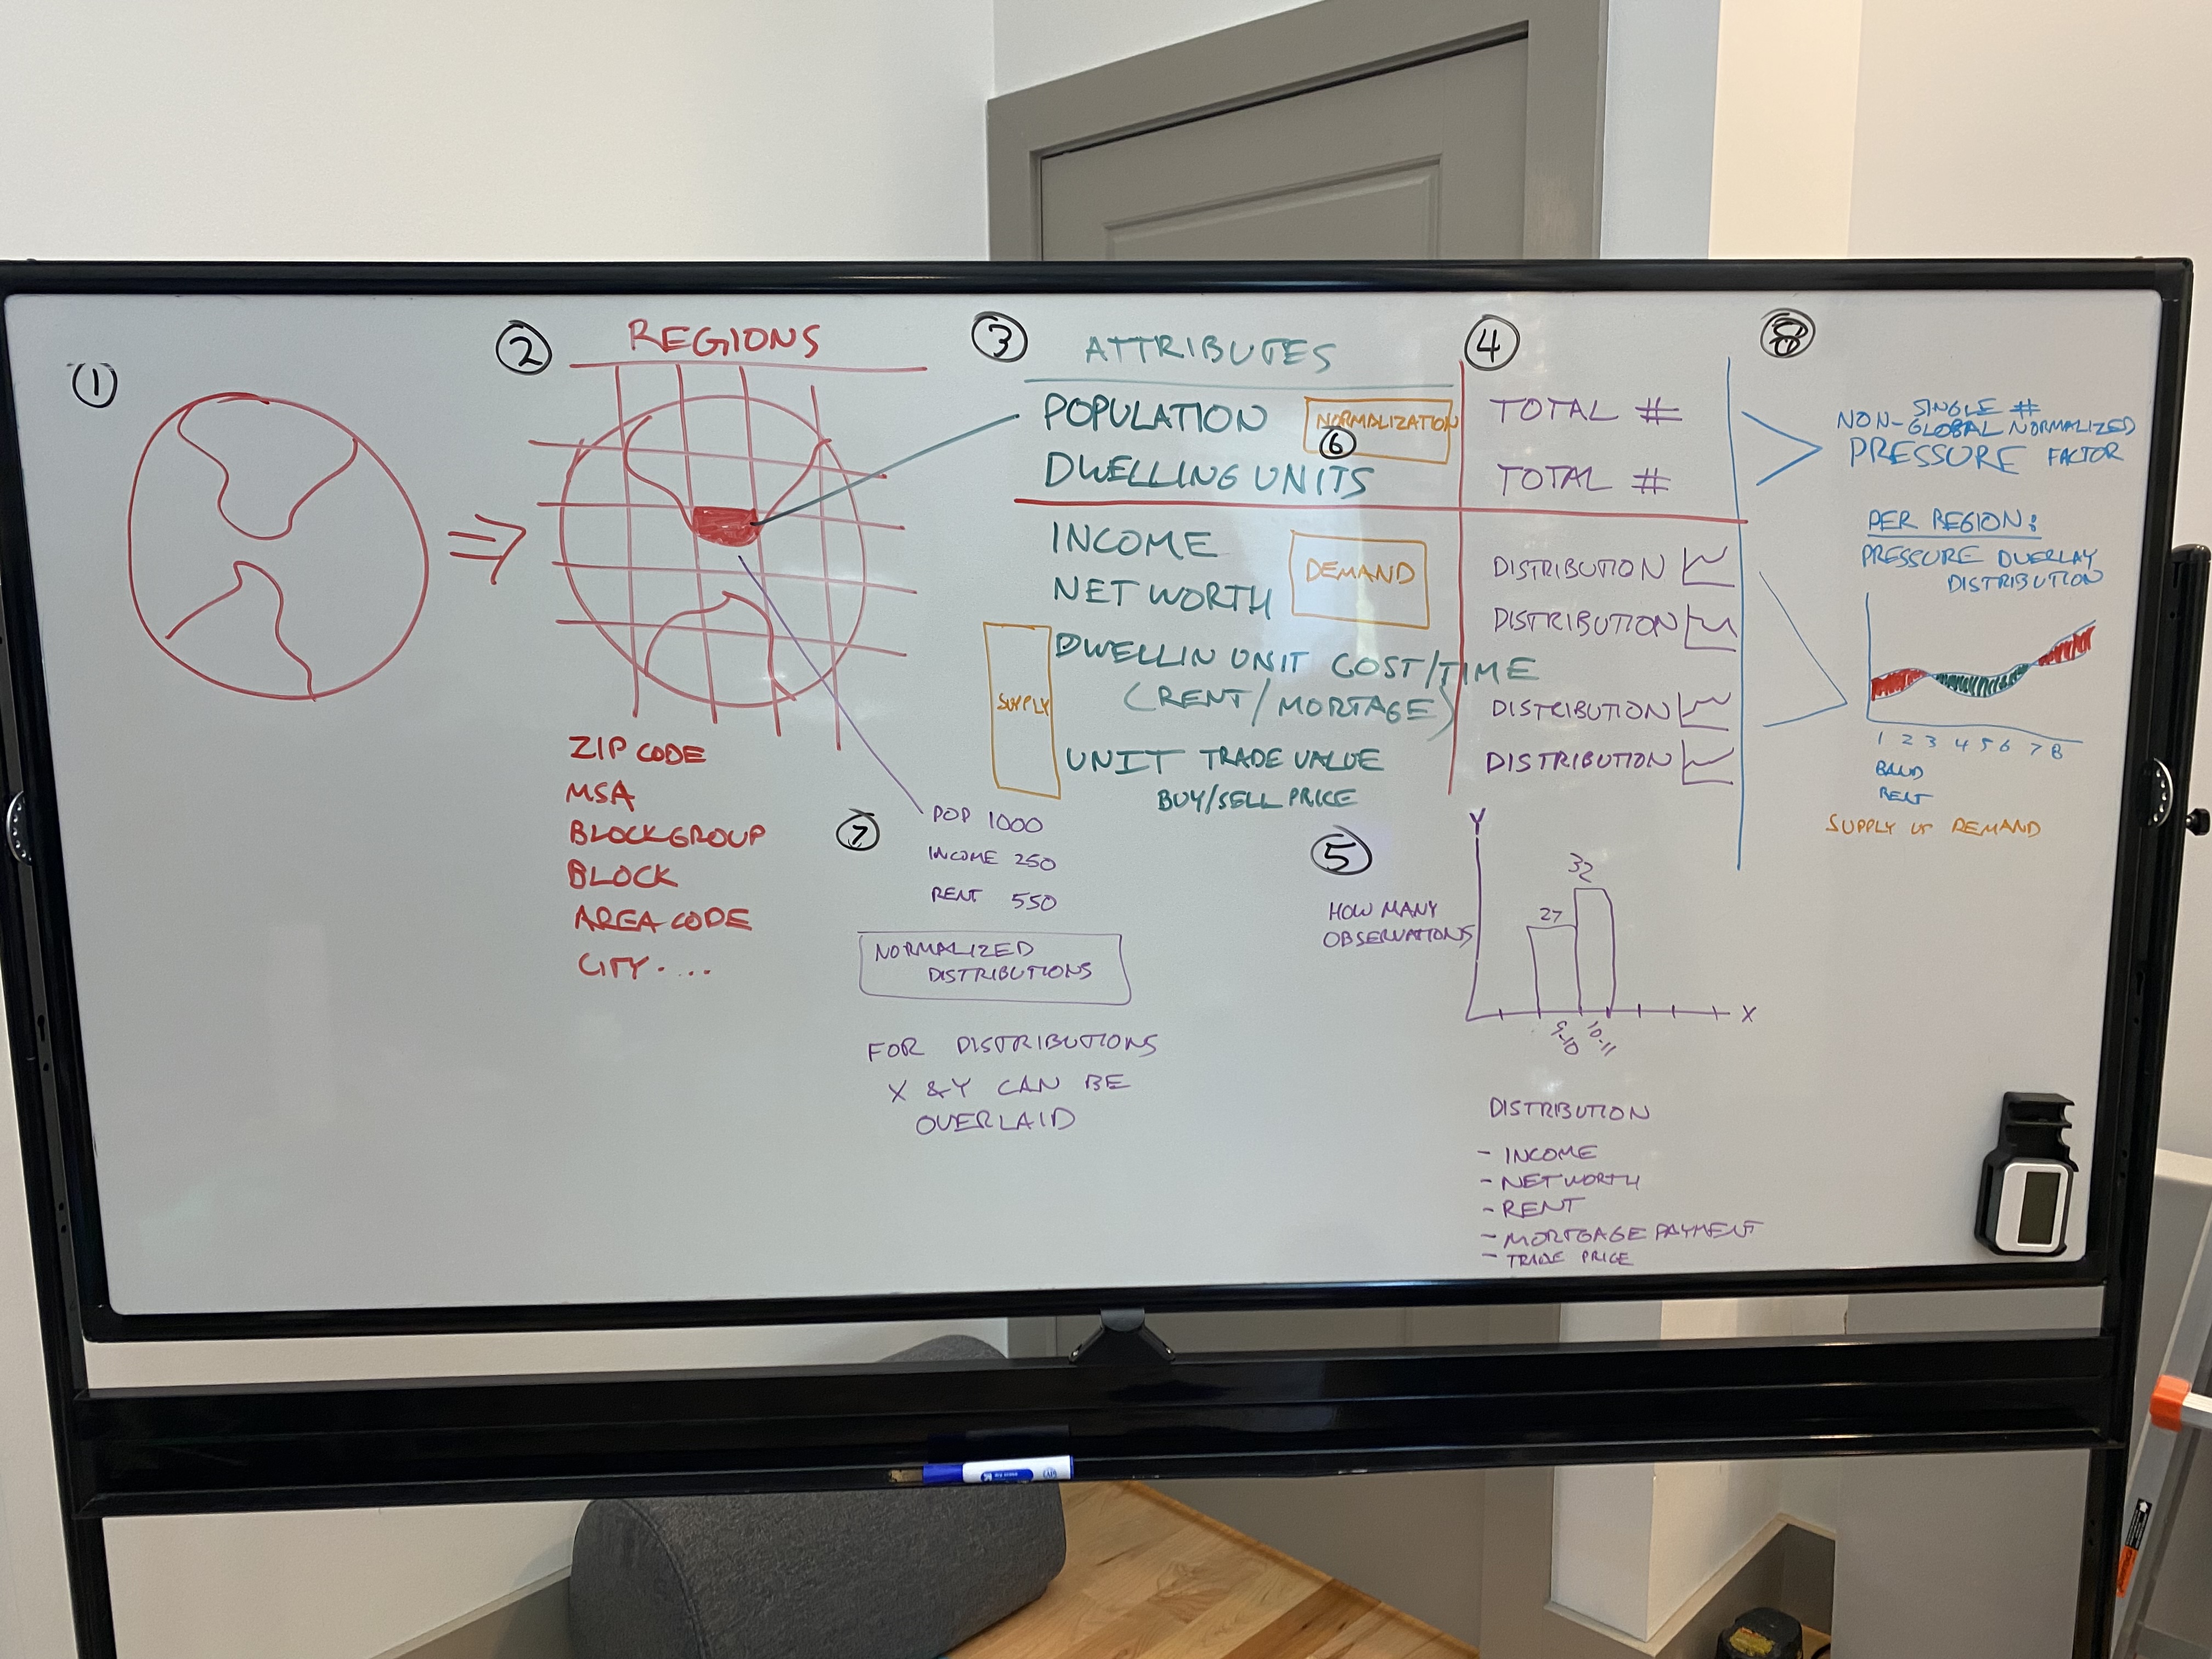 1
2
REGIONS
ZIP CODE
MSA
BLOCKGROUP
BLOCK
AREA CODE
CITY....
3
ATTRIBUTES
POPULATION
NORMALIZATION
6
DWELLING UNITS
INCOME
NET WORTH
DEMAND
SUPPLY
DWELLIN UNIT COST/TIME
(RENT/MORTAGE)
UNIT TRADE VALUE
BUY/SELL PRICE
4
TOTAL #
TOTAL #
DISTRIBUTION
DISTRIBUTION
DISTRIBUTION
DISTRIBUTION
5
Y
HOW MANY
OBSERVATIONS
27
32
X
9-10
10-11
DISTRIBUTION
- INCOME
- NET WORTH
- RENT
- MORTGAGE PAYMENT
- TRADE PRICE
7
POP 1000
INCOME 250
RENT 550
NORMALIZED
DISTRIBUTIONS
FOR DISTRIBUTIONS
X & Y CAN BE
OVERLAID
8
SINGLE #
NON-GLOBAL NORMALIZED
PRESSURE FACTOR
PER REGION:
PRESSURE OVERLAY
DISTRIBUTION
1 2 3 4 5 6 7 8
BAND
RENT
SUPPLY vs DEMAND